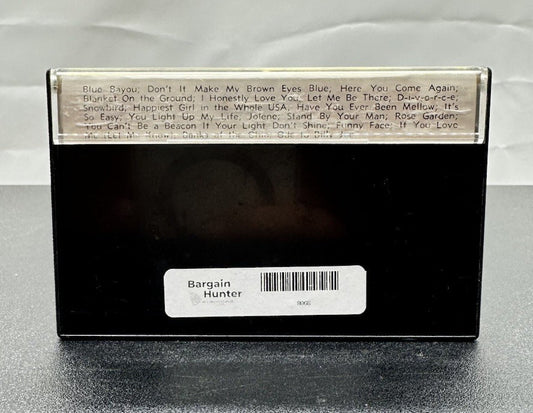 Blue Bayou; Don't It Make My Brown Eyes Blue; Here You Come Again;
Blanket On the Ground; I Honestly Love You; Let Me Be There; D-i-v-o-r-c-e;
Snowbird; Happiest Girl in the Whole USA; Have You Ever Been Mellow; It's
So Easy; You Light Up My Life; Jolene; Stand By Your Man; Rose Garden;
You Can't Be a Beacon If Your Light Don't Shine; Funny Face; If You Love
Me (Let Me Know); Banks of the Ohio; Ode to Billy Joe
Bargain
Hunter